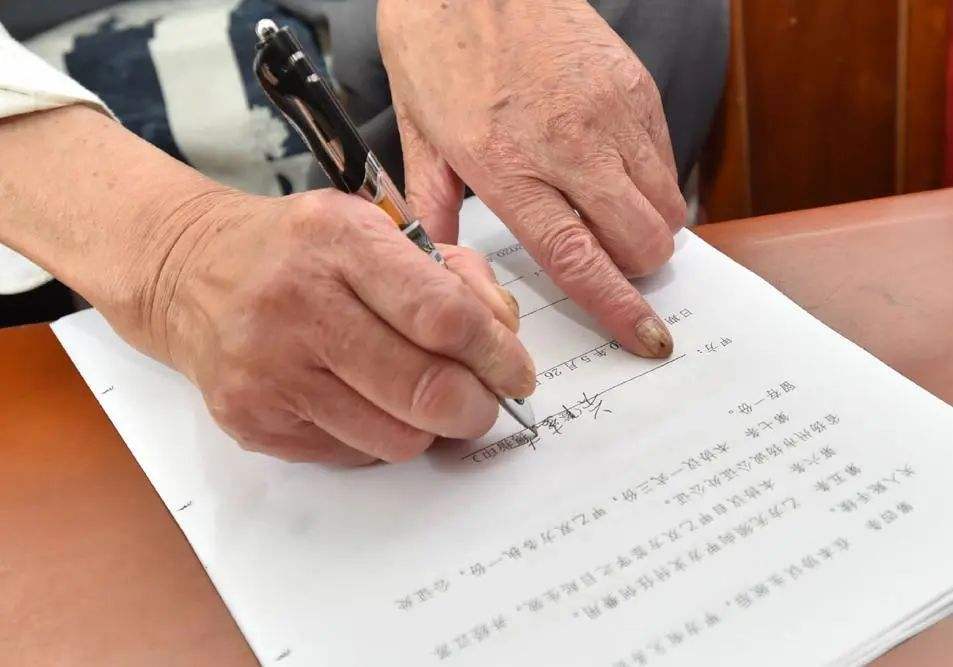 第四条 在本协议生效后，甲方负责
手续。
第五条 乙方无须向甲方支付任何费用。
第六条 本协议自甲乙双方签字之日起生效，并经江苏
省扬州市扬诚公证处公证。
第七条 本协议一式三份，甲乙双方各执一份，公证处
留存一份。
甲方： 指印）
日期 0年5月26日
2020